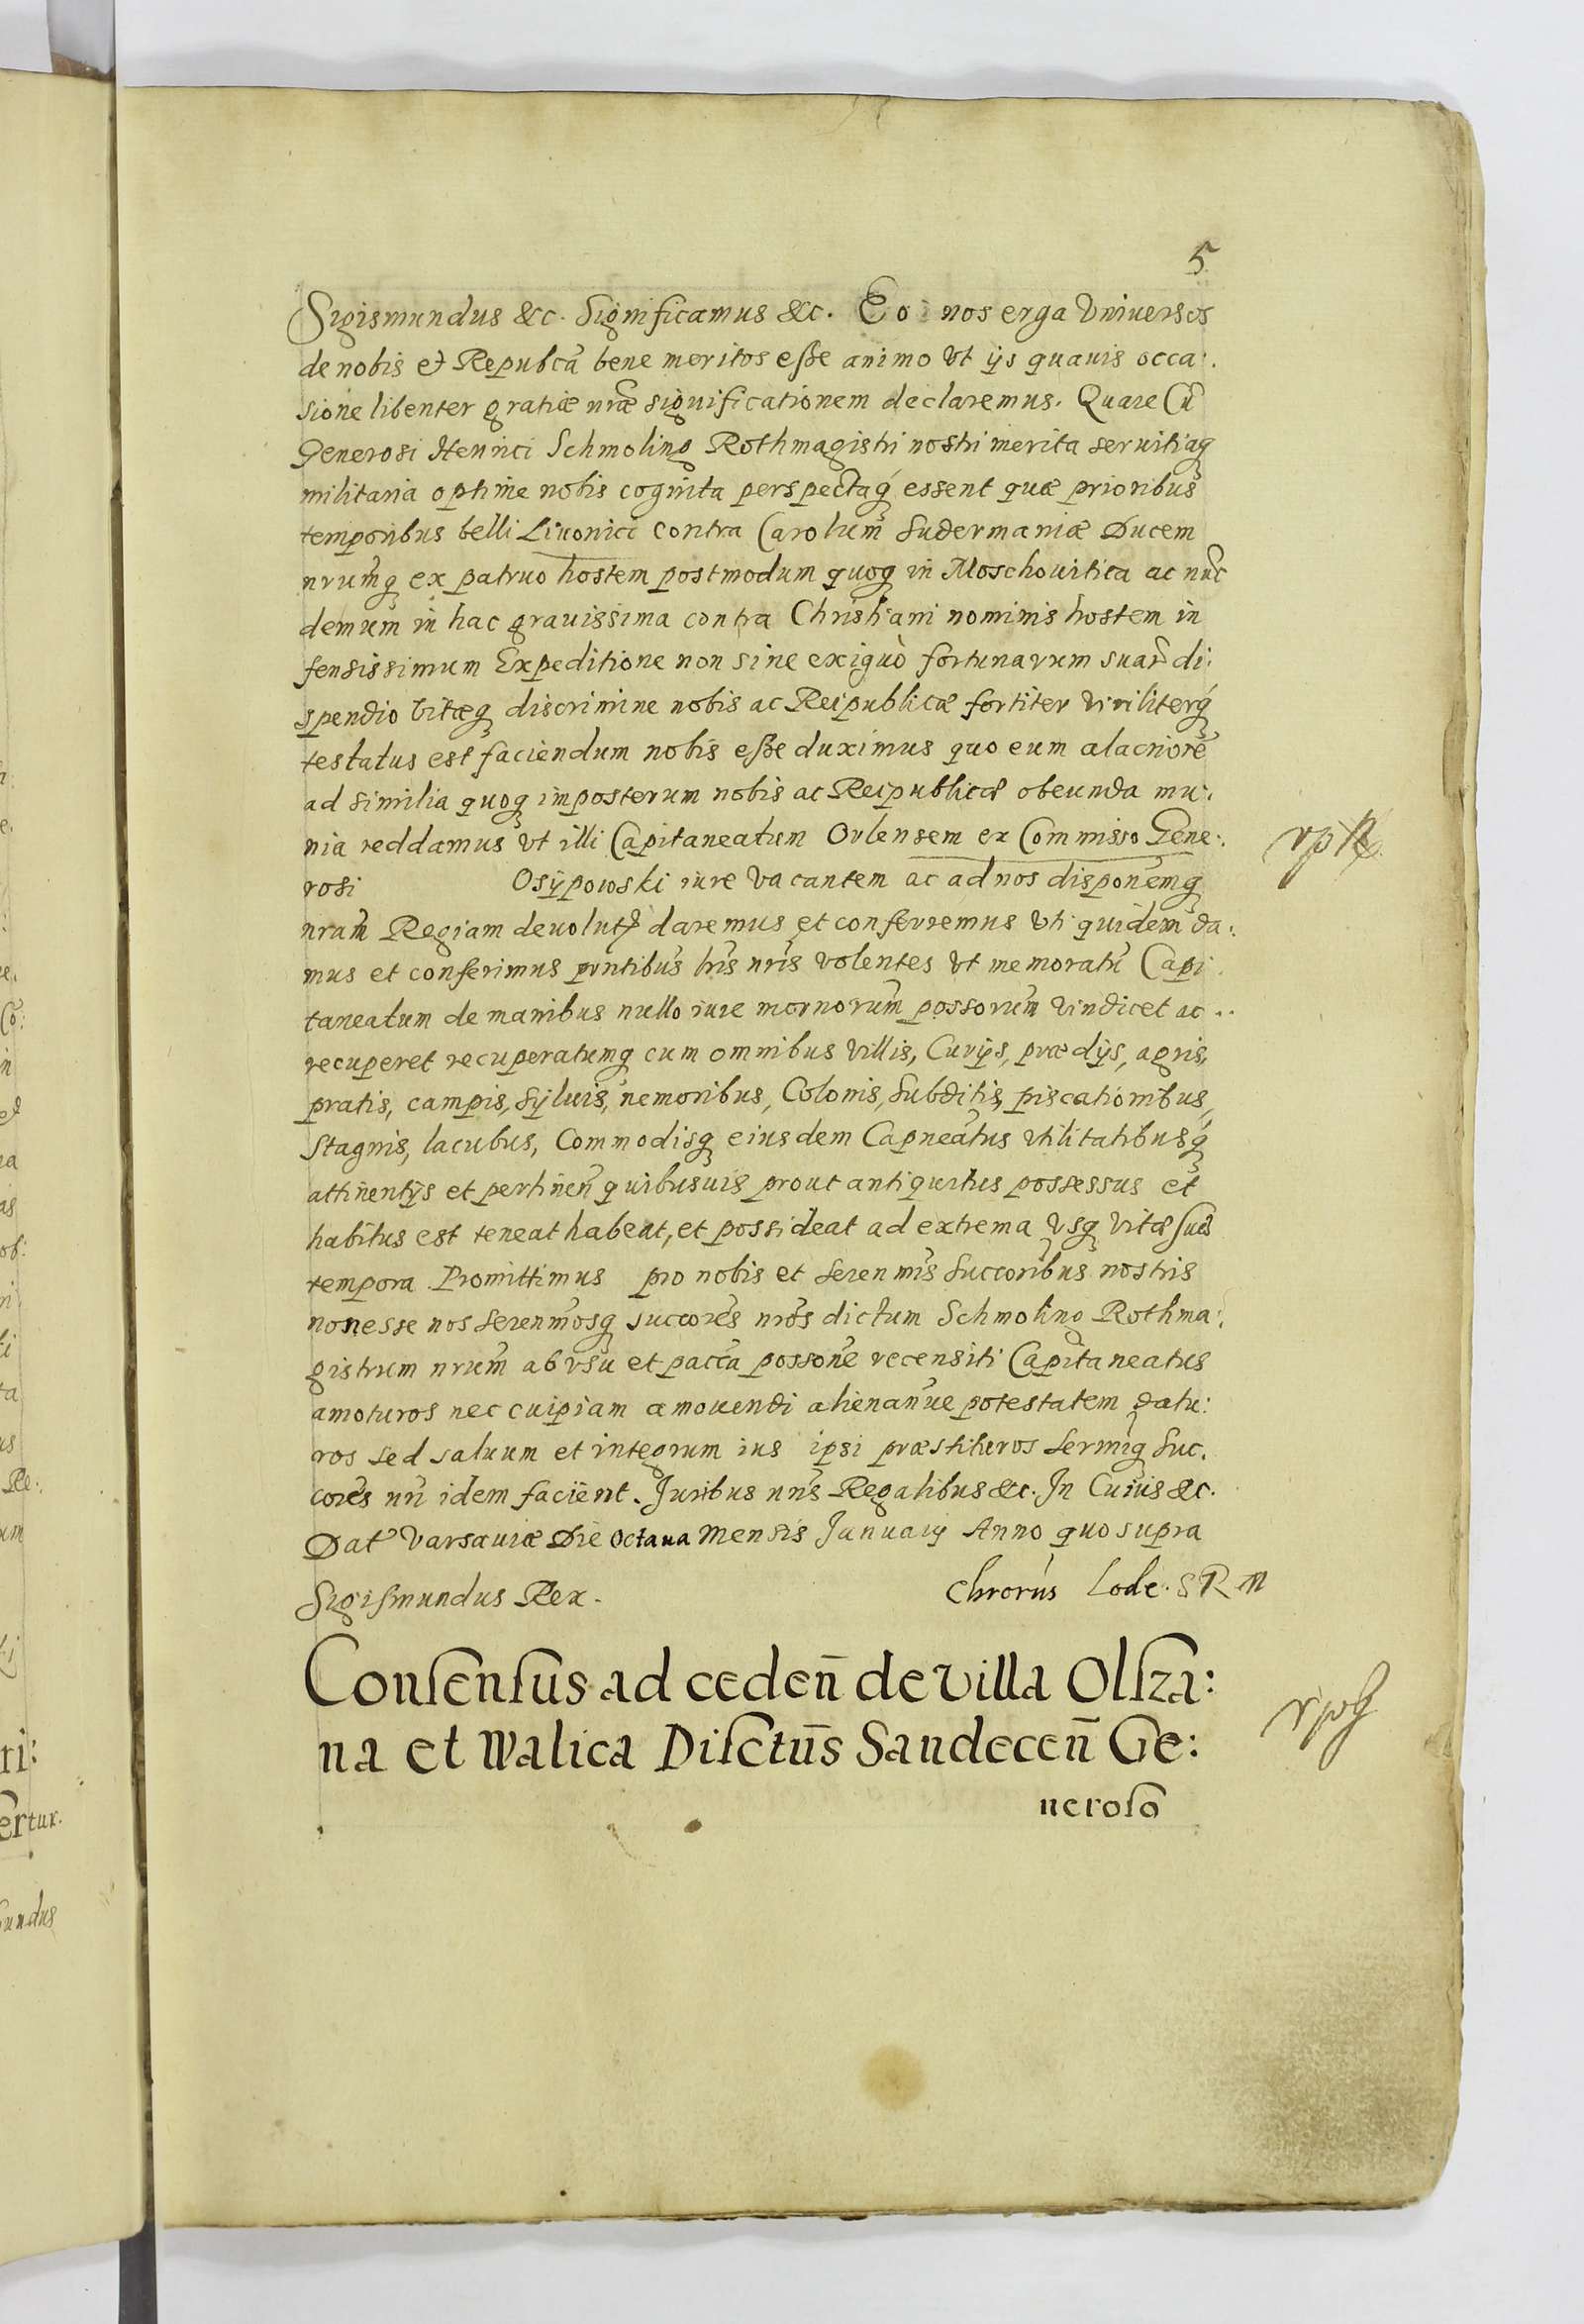 5
Sigismundus &c. Significamus &c. Eo nos erga Vniuersos
de nobis et Repubcā bene meritos eſse animo vt ijs quauis occa:
sione libenter gratiæ nræ significationem declaremus. Quare Cū
Generosi Henrici Schmoling Rothmagistri nostri merita seruitiaq
militaria optime nobis cognita perspectaq essent quæ prioribus
temporibus belli Liuonici contra Carolum Sudermaniæ Ducem
nrumq ex patruo hostem postmodum quoq in Moschouitica ac nūc
demum in hac grauissima contra Christiani nominis hostem in
fensissimum Expeditione non sine exiguò fortunarum suar̄ di:
spendio vitæq discrimine nobis ac Reipublicæ fortiter viriliterq
testatus est faciendum nobis eſse duximus quo eum alacriorē
ad similia quoq imposterum nobis ac Reipublicæ obeunda mu:
nia reddamus vt illi Capitaneatum Orlensem ex Commisso Gene:
rosi Osijpowski iure vacantem ac ad nos disponemq
nram Regiam deuolutū daremus et conferremus vti quidem da:
mus et conferimus pntibus lris nris volentes vt memoratū Capi
taneatum de manibus nullo iure mornorum possorum vindicet ac
recuperet recuperatumq cum omnibus villis, Curijs, prædijs, agris,
pratis, campis, sÿluis, nemoribus, Colonis, subditis, piscationibus,
stagnis, lacubus, Commodisq eiusdem Capneatus vtilitatibusq
attinentijs et pertinen̄ quibusuis prout antiquitus possessus et
habitus est teneat habeat, et possideat ad extrema vsq vitæ suæ
tempora Promittimus pro nobis et serenmis succoribus nostris
non esse nos serenmosq succores nros dictum Schmoling Rothma:
gistrum nrum ab vsu et pacca possone recensiti Capitaneatus
amoturos nec cuipiam amouendi alienanue potestatem datu:
ros sed saluum et integrum ius ipsi præstituros sermiq suc.
cores nri idem facient. Juribus nris Regalibus &c. In Cuius &c.
Dat Varsauiæ Die octaua Mensis Januarij Anno quo supra
Sigiſmundus Rex. Chrorus Lode. S R M
Conſenſus ad ceden̄ de villa Olſza:
na et Walica Diſctūs Sandecen̄ Ge:
neroſo